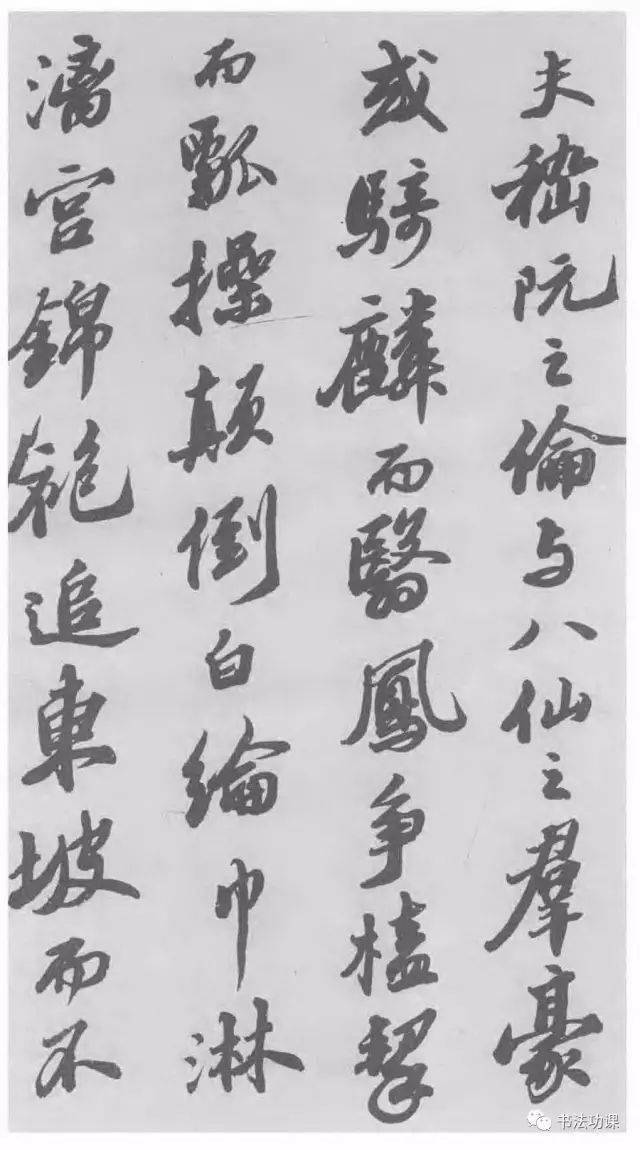 夫嵇阮之倫与八仙之羣豪
或騎麟而翳鳳争榼挈
而瓢操顛倒白綸巾淋
漓宫錦袍追東坡而不
书法功课